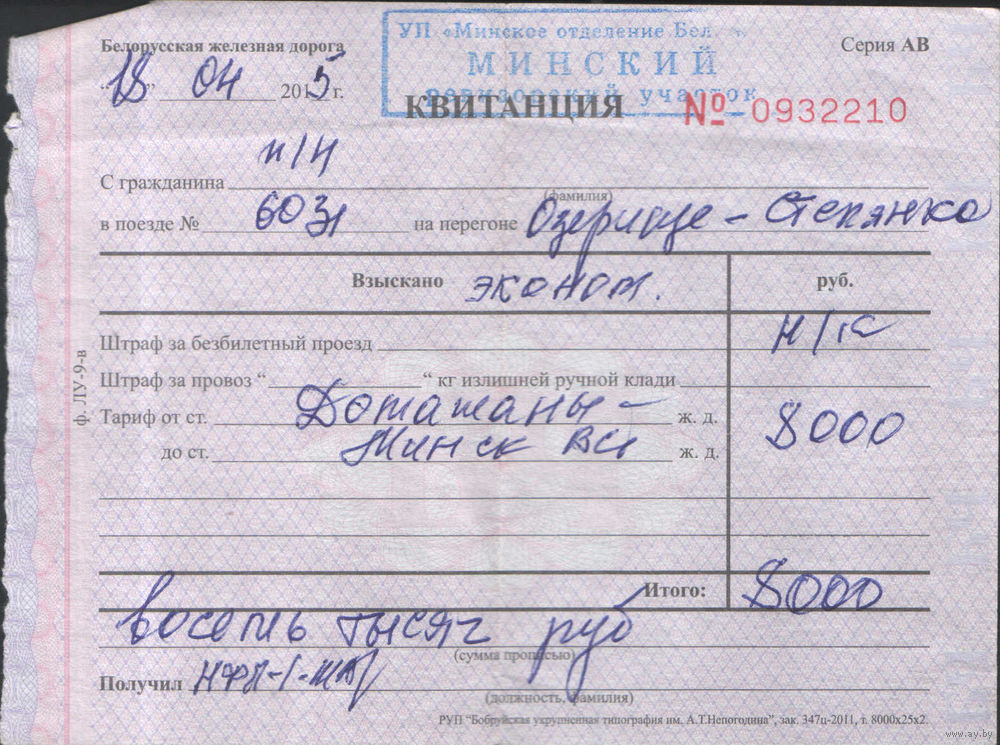 УП «Минское отделение Бел
Белорусская железная дорога
Серия АВ
МИНСКИЙ
"18" 04 2015 г.
ревизорский участок
КВИТАНЦИЯ № 0932210
н/н
С гражданина
(фамилия)
в поезде № 6031 на перегоне Озерище - Степянка
Взыскано эконом. руб.
Штраф за безбилетный проезд
Штраф за провоз “ “ кг излишней ручной клади
Тариф от ст. Домашаны - ж. д. 8000
до ст. Минск Вс ж. д.
Итого: 8000
восемь тысяч руб
(сумма прописью)
Получил
(должность, фамилия)
РУП “Бобруйская укрупненная типография им. А.Т.Непогодина”, зак. 347ц-2011, т. 8000х25х2.
ф. ЛУ-9-в
www.ay.by